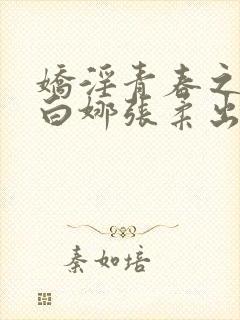 嬌淫青春之
白娜張柔出
秦如培